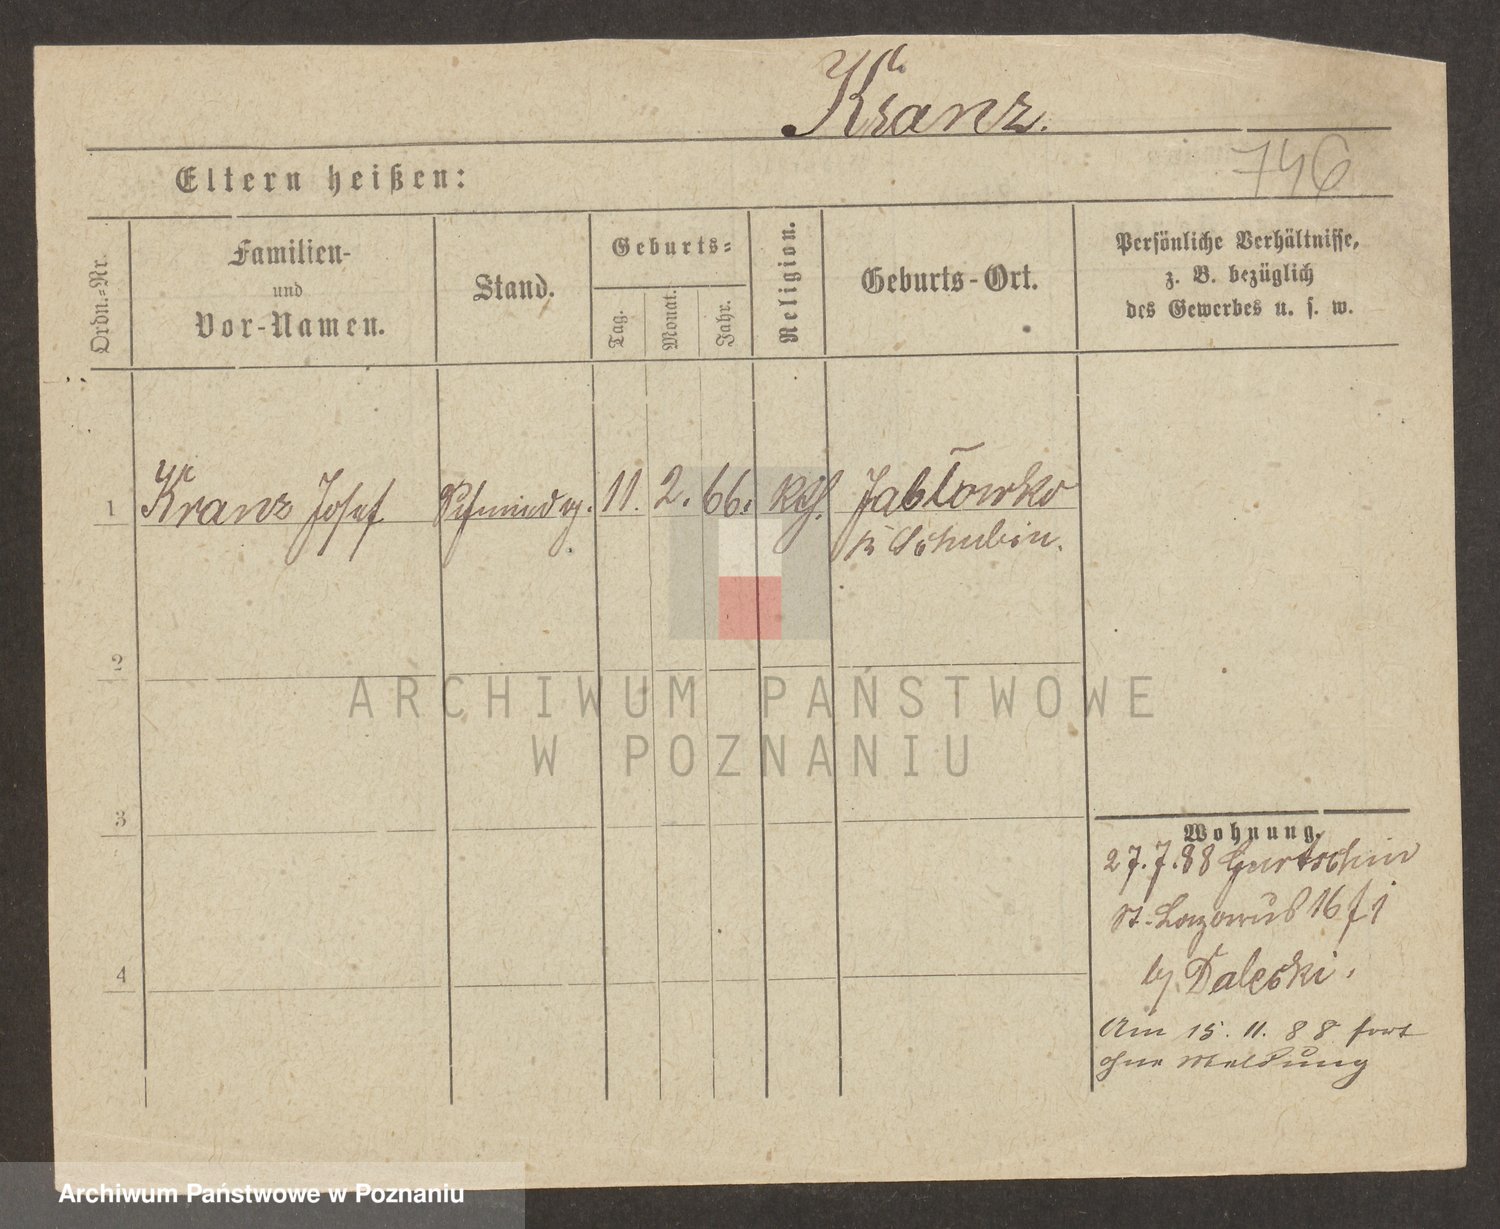 Kranz.
746
Eltern heißen:
Ordn.-Nr.
Familien-
und
Vor-Namen.
Stand.
Geburts-
Tag.
Monat.
Jahr.
Religion.
Geburts-Ort.
Persönliche Verhältnisse,
z. B. bezüglich
des Gewerbes u. s. w.
1 Kranz Josef Schmiedeg. 11. 2. 66. kth. Jabłowko
Kr Schubin.
2
ARCHIWUM PAŃSTWOWE
W POZNANIU
3
Wohnung.
27.7.88 Gurtschin
St. Lazarus 16 f 1
by Daleski.
4
Am 15. 11. 88 fort
ohne Meldung
Archiwum Państwowe w Poznaniu